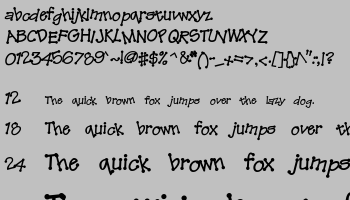 abcdefghijklmnopqrstuvwxyz
ABCDEFGHIJKLMNOPQRSTUVWXYZ
0123456789`~!@#$%^&*()-_+=?,<.[]{}/\":;|?
12 The quick brown fox jumps over the lazy dog.
18 The quick brown fox jumps over
24 The quick brown fox jumps